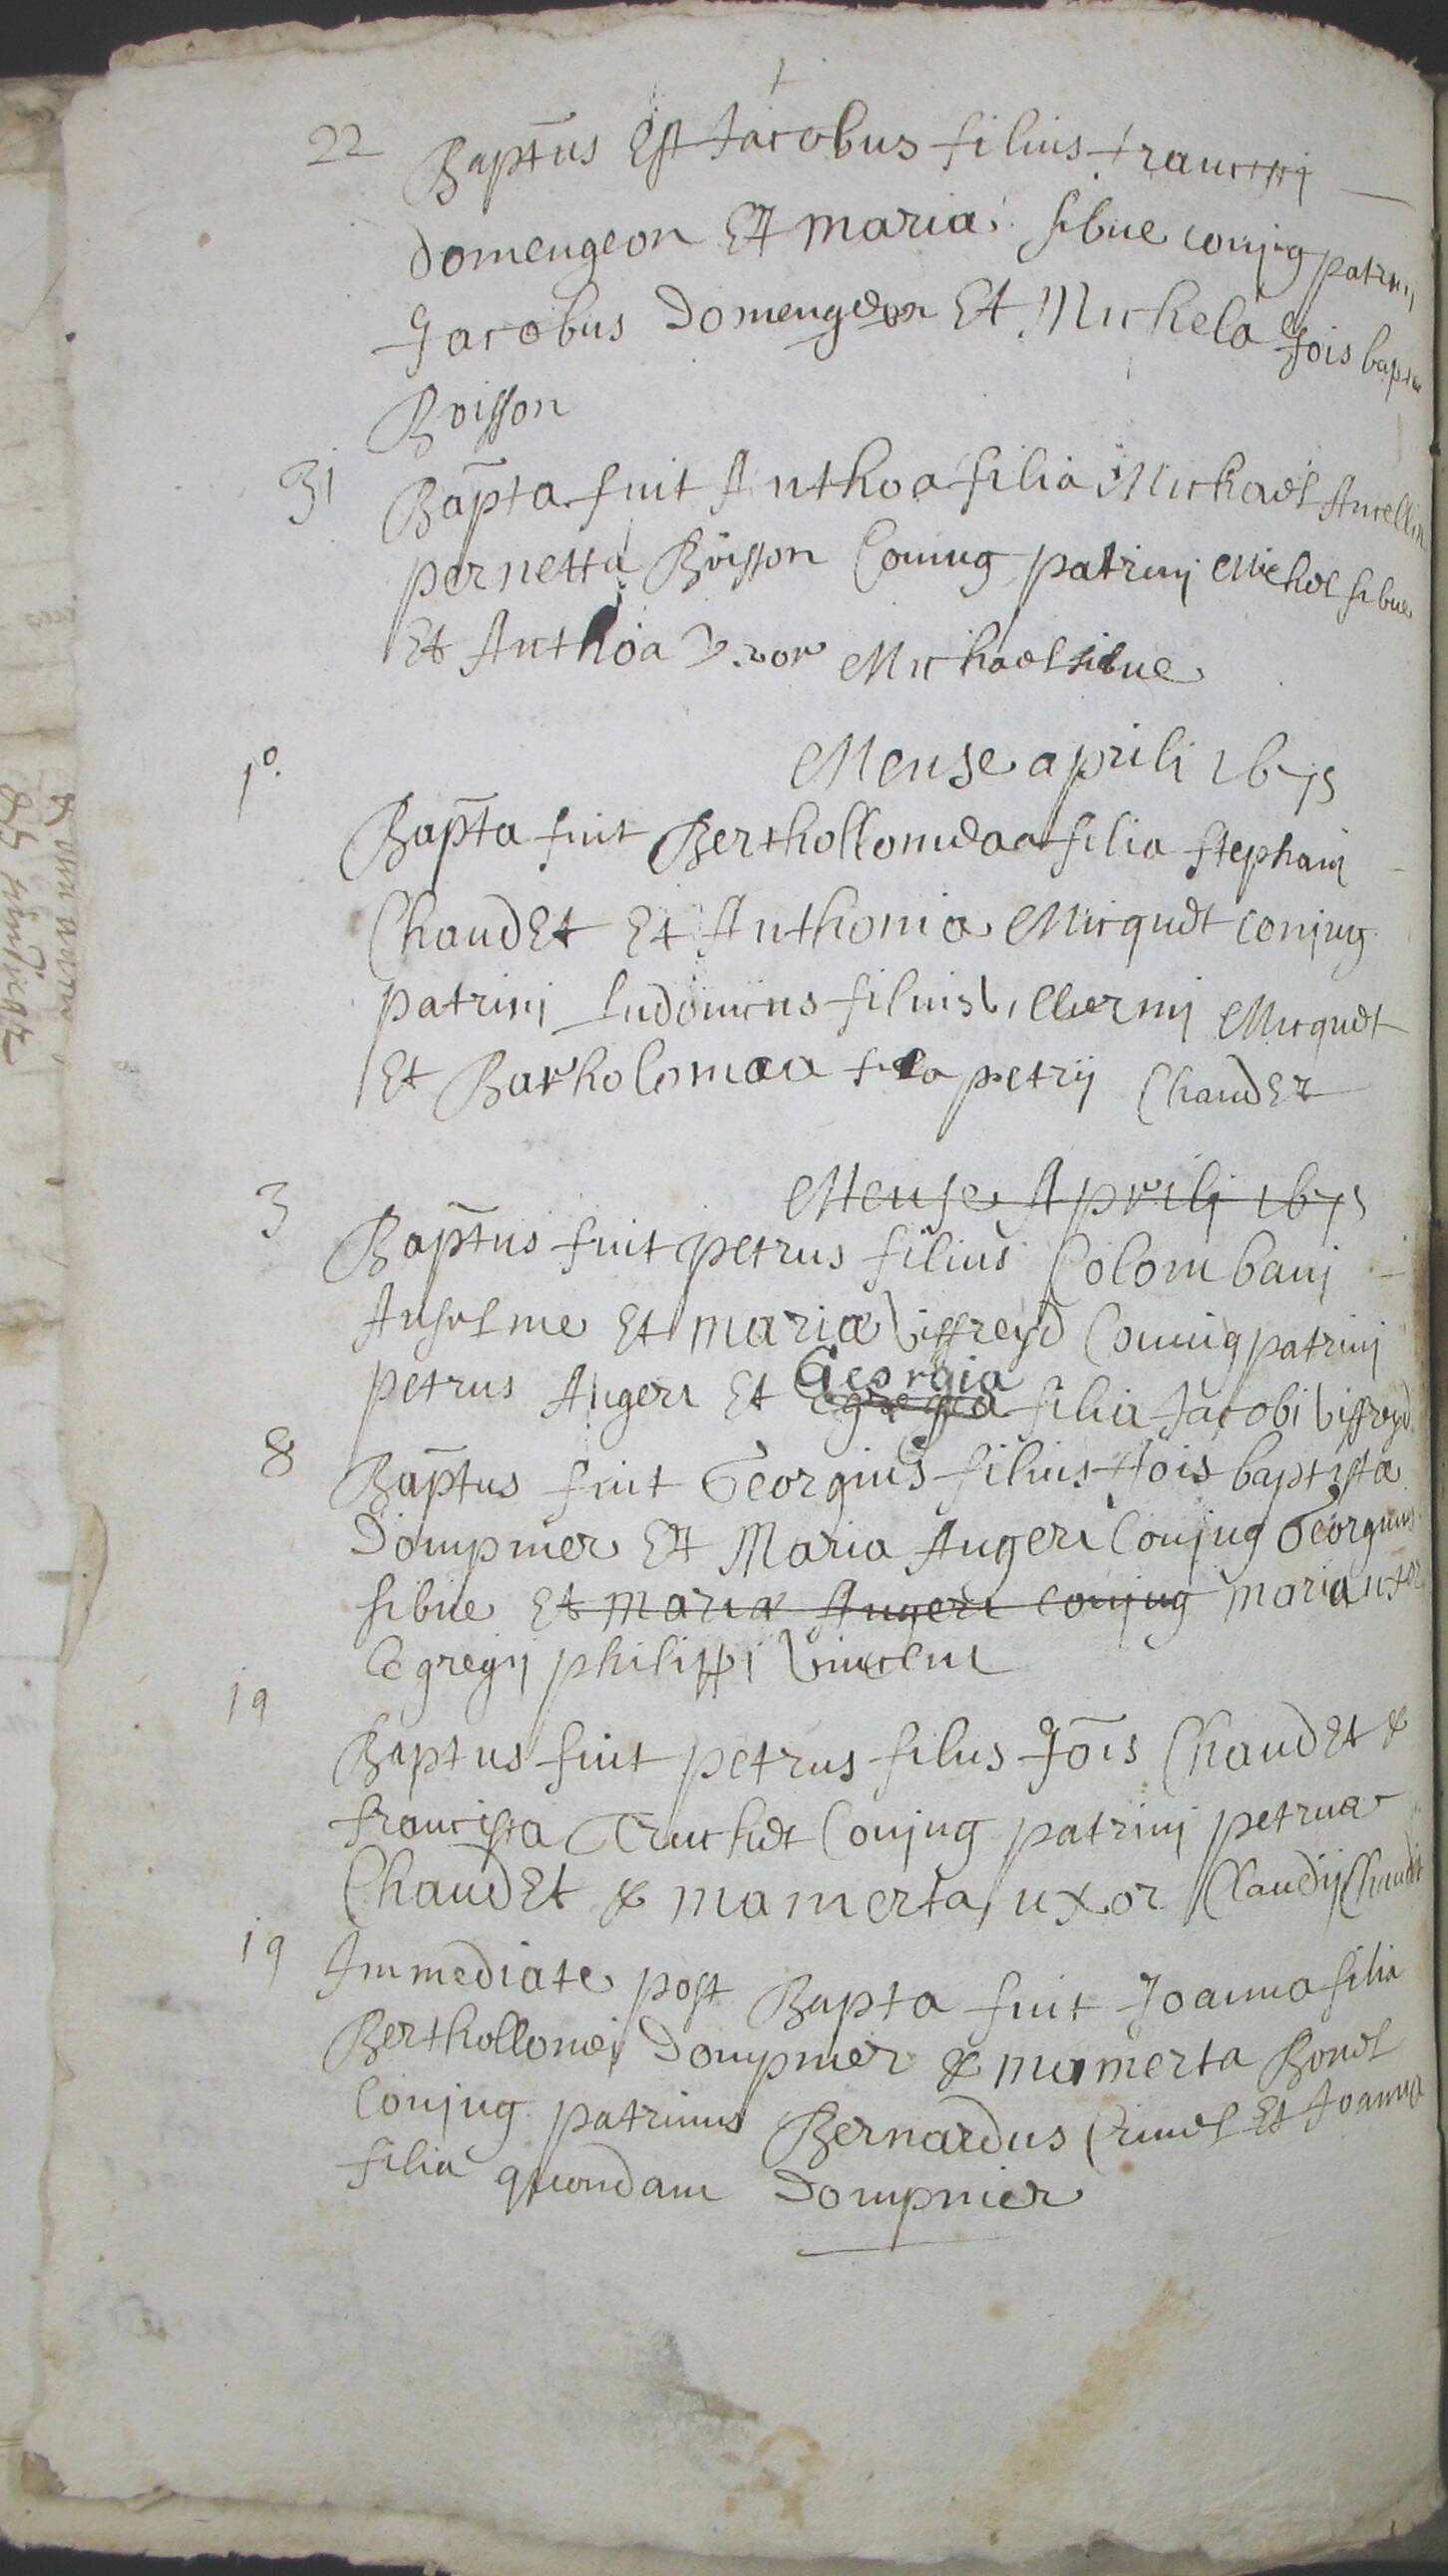 22 Bap̃tus Est Jacobus filius francisci
domengeon Et maria sibue conjug patrinj
Jacobus Domengeon Et Michela Jois baptae
Boisson
31 Bap̃ta fuit Anthoa filia Michael Ancellin
pernetta Boisson Conjug patrinj Michael sibue
Et Anthoa Uxor Michael sibue
Mense aprili 1675
1o. Bap̃ta fuit Berthollomeaa filia stephani
ChaudEt Et Anthonia Micquet conjug
patrinj Ludovicus filius Villiermj Micquet
Et Bartholomaea fila petrij ChaudEt
Mense Aprilj 1675
3 Bap̃tus fuit petrus filius Colombanj
Anselme Et mariæ Viffreyd Coniug patrinj
petrus Angeri Et Egregia Georgia filia Jacobi Viffreyd
8 Bap̃tus fuit Georgius filius Jois baptista
Dompnier Et Maria Angeri Conjug Georgius
sibue Et mariæ Angeri conjug maria uxor
Egregij philippi Vincent
19 Baptus fuit petrus filus Jõis ChaudEt &
francisca Truchet Conjug patrinj petrus
ChaudEt & mamerta uxor Claudij Chaudet
19 Immediate post Bapta fuit Joanna filia
Berthollomei Dompnier & mamerta Bonel
Conjug patrinus Bernardus Crinel Et Joanna
filia quondam Dompnier